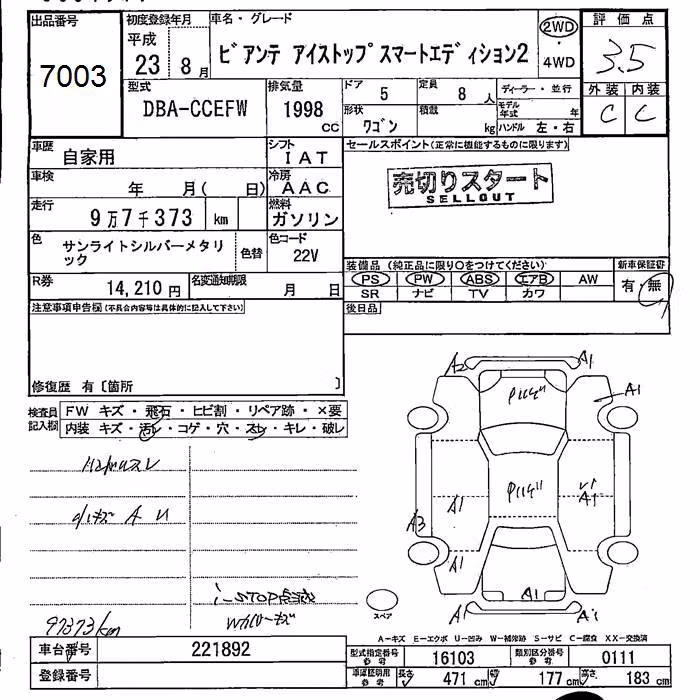 出品番号
7003
初度登録年月
平成
23 8月
車名・グレード
ビアンテ アイストップスマートエディション2
2WD
・
4WD
評価点
3.5
外装 内装
C C
型式
DBA-CCEFW
排気量
1998
CC
ドア
5
定員
8人
ディーラー・並行
形状
ワゴン
積載
kg
モデル年式 年
ハンドル 左・右
車歴
自家用
シフト
IAT
セールスポイント(正常に機能するものに限ります)
売切りスタート
SELLOUT
車検
年 月( 日)
冷房
AAC
走行
9万7千373 km
燃料
ガソリン
色
サンライトシルバーメタリ
ック
色替
色コード
22V
装備品 (純正品に限り○をつけてください)
新車保証書
PS PW ABS エアB AW
SR ナビ TV カワ
有・無
R券
14,210 円
名変通知期限
月 日
後日品
注意事項申告欄(不具合内容等は具体的に記入して下さい)
修復歴 有〔箇所 〕
検査員
記入欄
FW キズ・飛石・ヒビ割・リペア跡・×要
内装 キズ・汚れ・コゲ・穴・スレ・キレ・破レ
A U
i-STOP
97373km
A2
A1
A1
A1
A1
A3
A1
A1
A1
A1
スペア
A-キズ E-エクボ U-凹み W-補修跡 S-サビ C-腐食 XX-交換済
車台番号
221892
型式指定番号
参考
16103
類別区分番号
参考
0111
登録番号
車庫証明用
参考
長さ 471 cm
幅 177 cm
高さ 183 cm